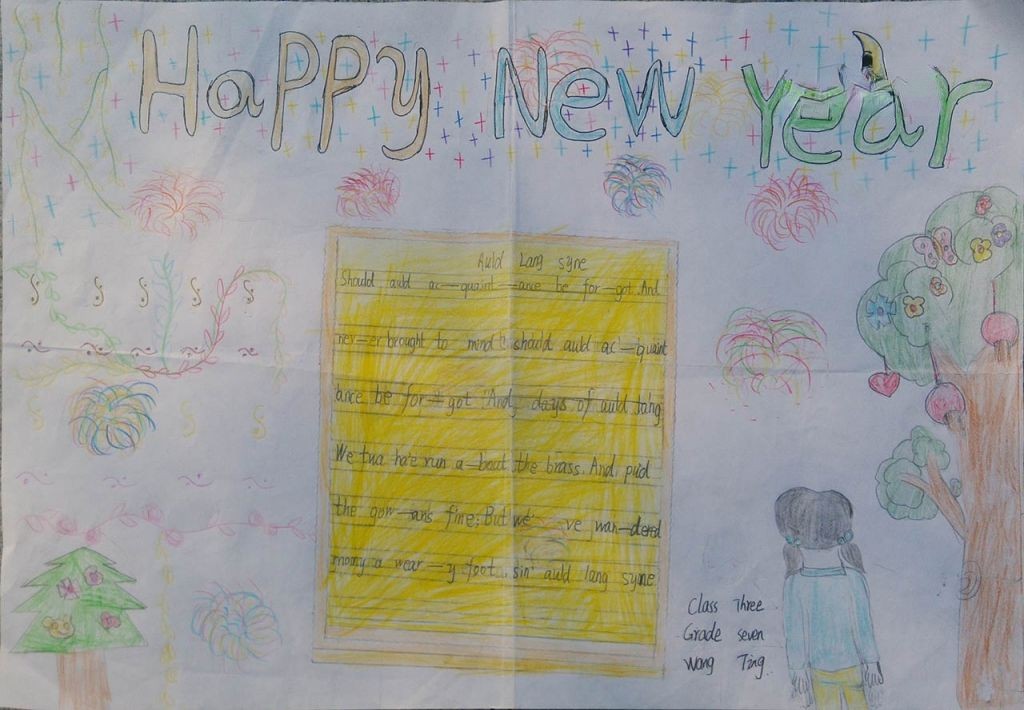 Happy New Year
Auld Lang syne
Should auld ac-quaint-ance be for-got. And
nev-er brought to mind? should auld ac-quaint
ance be for-got "And, days of auld lang
We twa ha'e run a-bout the brass. And pu'd
the gow-ans fine; But we' ve wan-dered
mony a wear-y foot sin' auld lang syne
Class Three
Grade seven
Wang Ting